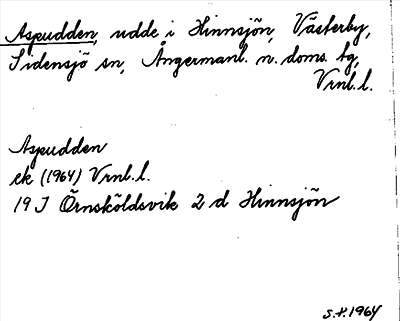 Aspudden, udde i Hinnsjön, Västerby,
Sidensjö sn, Ångermanl. n. doms. tg,
Vrnl. l.
Aspudden
ek (1964) Vrnl. l.
19 J Örnsköldsvik 2 d Hinnsjön
S.H. 1964